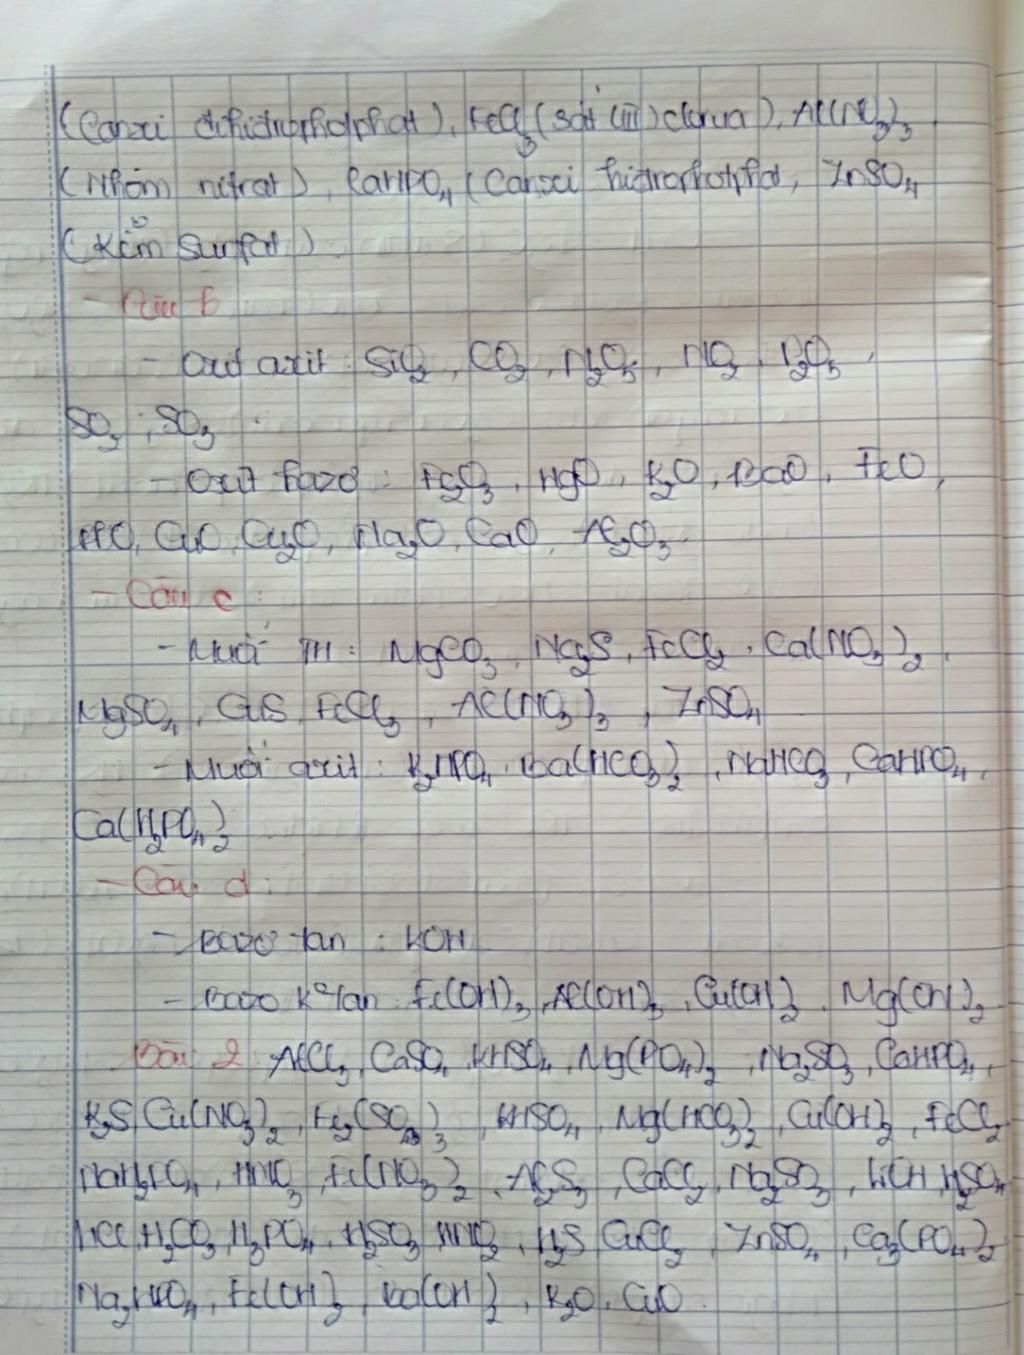 (Canxi đihiđrophotphat), FeCl3 (Sắt (III) clorua), Al(NO3)3
(Nhôm nitrat), CaHPO4 (Canxi hiđrophotphat, ZnSO4
(Kẽm Sunfat)
- Câu b
- Oxit axit: SiO2, CO2, N2O5, NO2, P2O5,
SO2, SO3.
- Oxit bazơ: Fe2O3, HgO, K2O, BaO, FeO,
CuO, Cu2O, Na2O, CaO, Al2O3.
- Câu c:
- Muối TH: MgCO3, Na2S, FeCl2, Ca(NO3)2,
MgSO4, CuS, FeCl3, Al(NO3)3, ZnSO4
- Muối axit: K2HPO4, Ba(HCO3)2, NaHCO3, CaHPO4,
Ca(H2PO4)2
- Câu d:
- Bazơ tan: KOH
- Bazơ K° tan: Fe(OH)3, Al(OH)3, Cu(OH)2, Mg(OH)2
Bài 2 AlCl3, CaSO4, KHSO4, Mg(PO4)2, Na2SO3, CaHPO4,
K2S, Cu(NO3)2, Fe2(SO4)3, KHSO4, Mg(HCO3)2, Cu(OH)2, FeCl2
NaH2PO4, HNO3, Fe(NO3)2, Al2S3, CaCl2, Na2SO3, LiOH, H2SO4
HCl, H2CO3, H3PO4, H2SO3, HNO2, H2S, CuCl2, ZnSO4, Ca3(PO4)2
Na2HPO4, Fe(OH)2, Ba(OH)2, K2O, CuO.